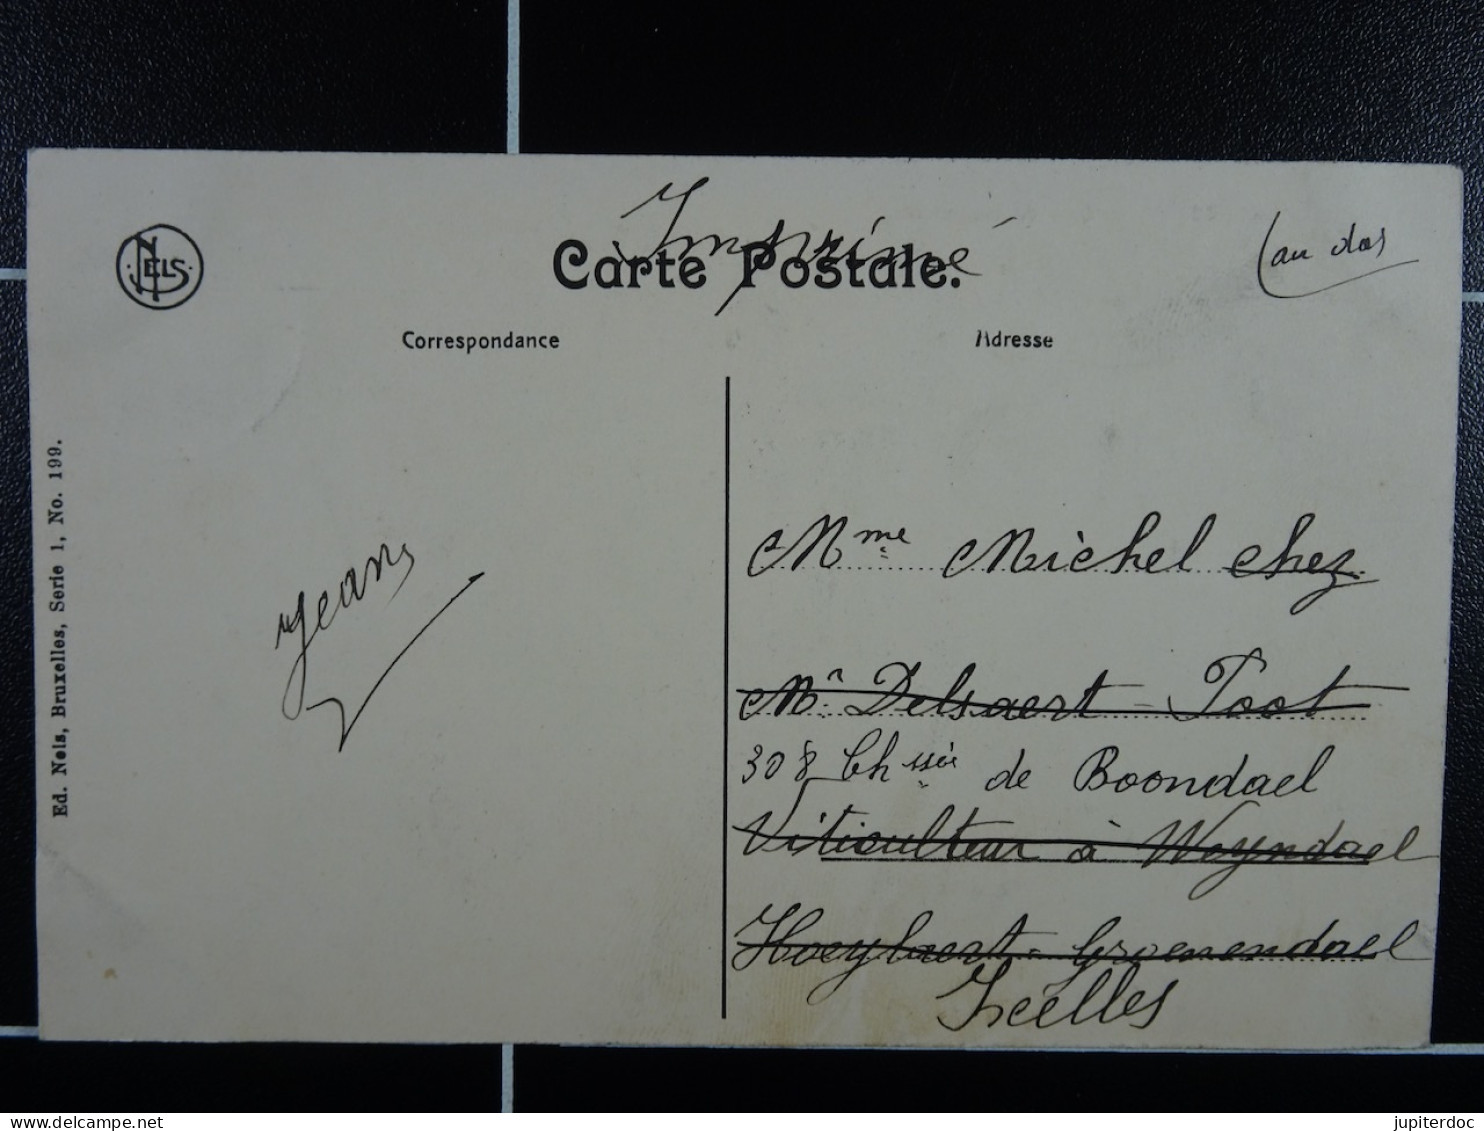 Imprimé
(au dos)
NELS
Carte Postale.
Correspondance
Adresse
Ed. Nels, Bruxelles, Serie 1, No. 199.
Jean
Mme Michel chez
Mr Delsaert-Toot
308 Chssée de Boondael
Viticulteur à Weyndael
Hoeylaert-Groenendael
Ixelles
jupiterdoc
delcampe.net